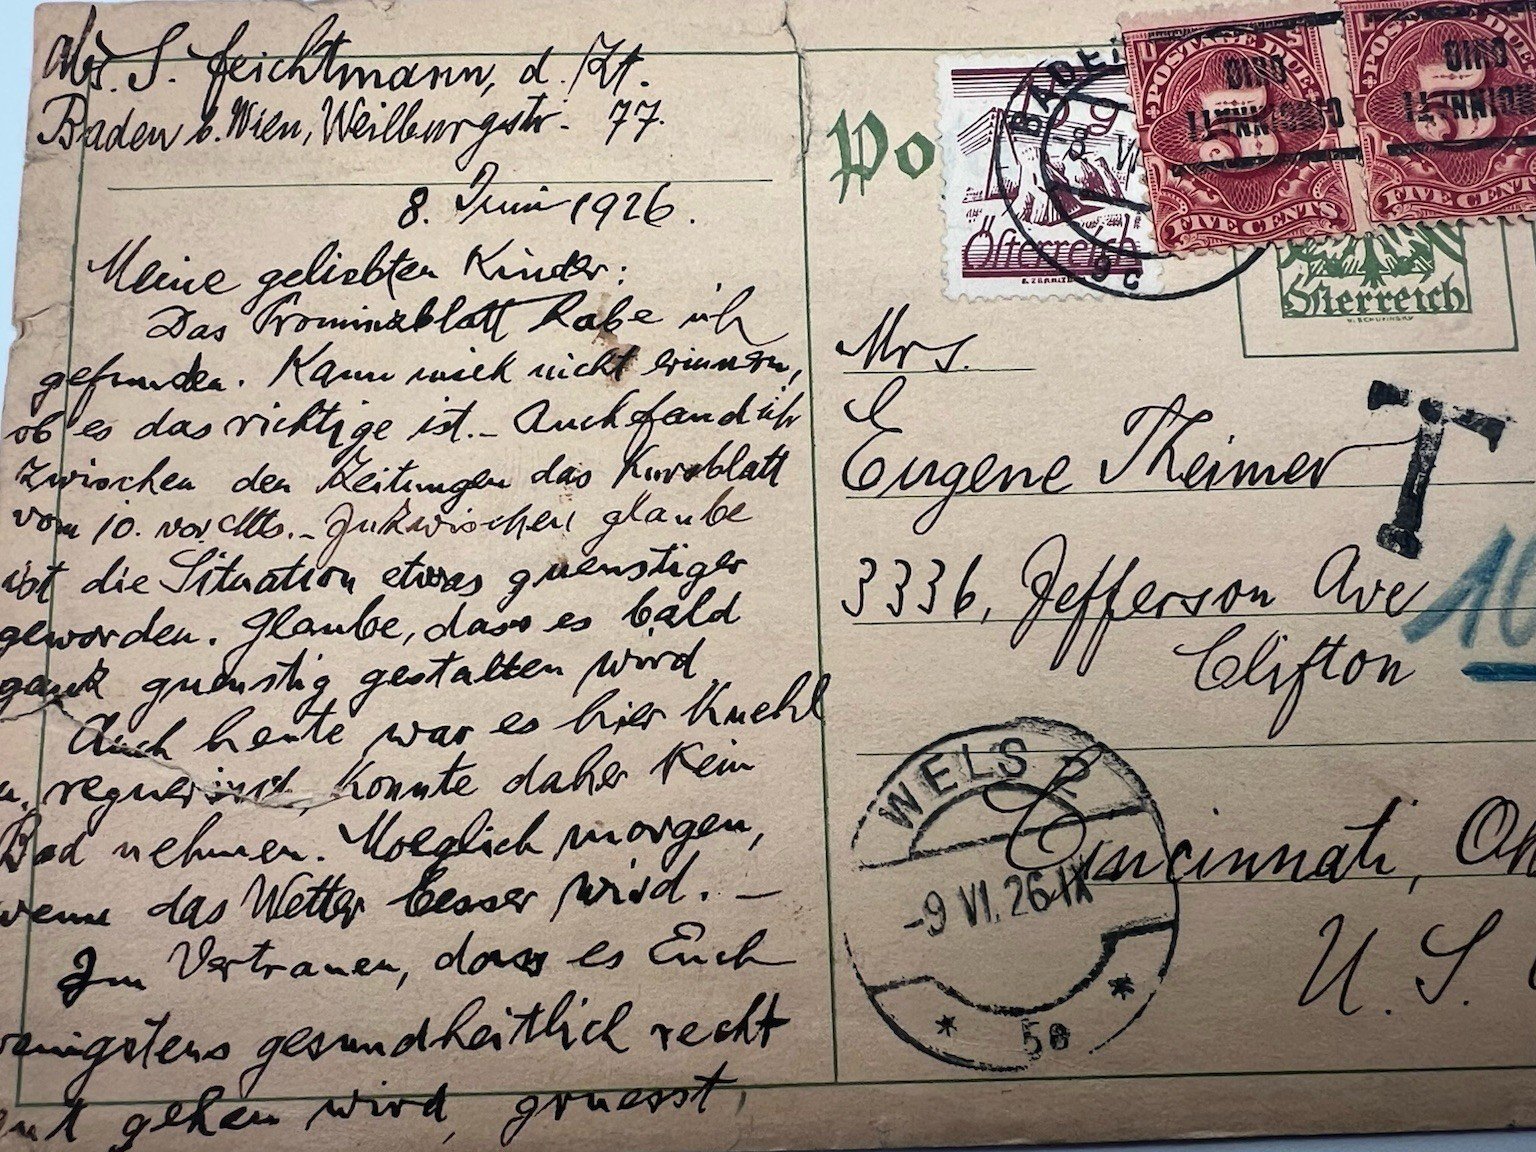 Abs. S. Feichtmann, d. Zt.
Baden b. Wien, Weilburgstr. 77.
8. Juni 1926.
Meine geliebten Kinder:
Das Prominzblatt habe ich
gefunden. Kann mich nicht erinnern,
ob es das richtige ist.- Auch fand ich
zwischen den Zeitungen das Kursblatt
vom 10. vor. Mts.- Inzwischen glaube
ist die Situation etwas guenstiger
geworden. Glaube, dass es bald
ganz guenstig gestalten wird
Auch heute war es hier kuehl
u. regnerisch, konnte daher kein
Bad nehmen. Moeglich morgen,
wenn das Wetter besser wird. -
Im Vertrauen, dass es Euch
wenigstens gesundheitlich recht
gut gehen wird, gruesst,
Po
BADEN
Österreich
POSTAGE DUE
CINCINNATI
OHIO
5
FIVE CENTS
POSTAGE DUE
CINCINNATI
OHIO
5
FIVE CENTS
Österreich
Mrs.
Eugene Theimer
T
3336, Jefferson Ave
10
Clifton
Cincinnati, Oh
U. S.
WELS 2
-9 VI. 26 IX
* 5e *